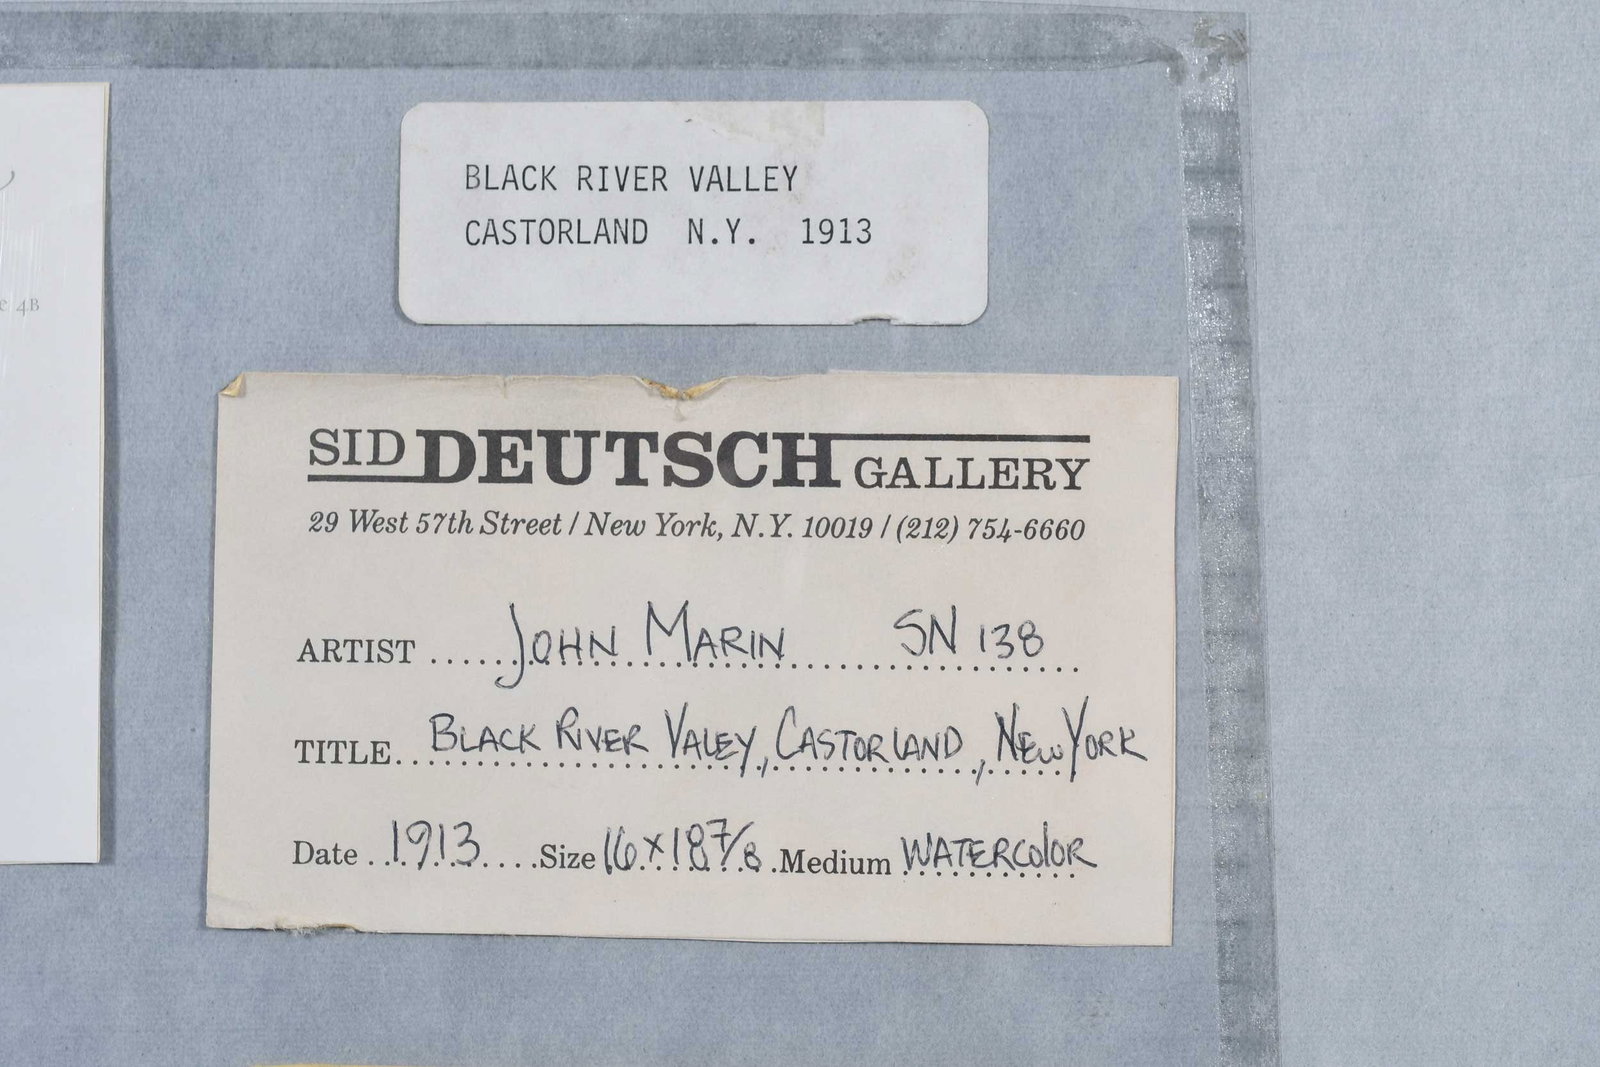 e 4B
BLACK RIVER VALLEY
CASTORLAND N.Y. 1913
SID DEUTSCH GALLERY
29 West 57th Street / New York, N.Y. 10019 / (212) 754-6660
ARTIST ...... JOHN MARIN SN 138
TITLE... BLACK RIVER VALEY, CASTORLAND, NEW YORK
Date .. 1913 .... Size 16 x 18 7/8 . Medium WATERCOLOR